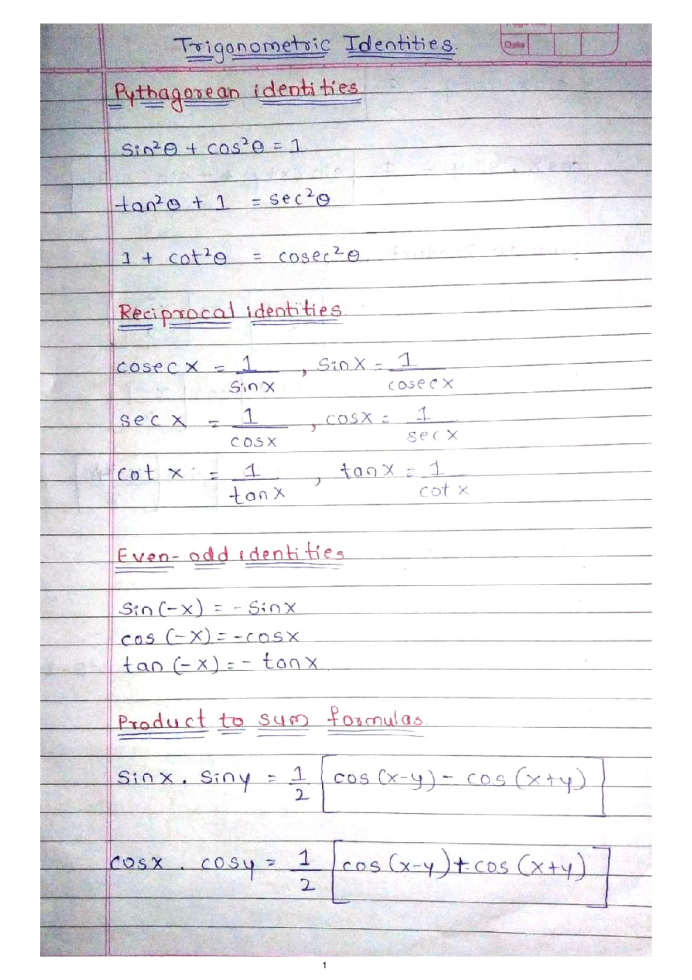 Trigonometric Identities.
Date
Pythagorean identities
sin²θ + cos²θ = 1
tan²θ + 1 = sec²θ
1 + cot²θ = cosec²θ.
Reciprocal identities
cosec x = 1/sin x , sin x = 1/cosec x
sec x = 1/cos x , cos x = 1/sec x
cot x = 1/tan x , tan x = 1/cot x
Even-odd identities
sin(-x) = - sin x
cos (-x) = - cos x
tan (-x) = - tan x
Product to sum formulas
sin x . sin y = 1/2 [cos (x-y) - cos (x+y)]
cos x . cos y = 1/2 [cos (x-y) + cos (x+y)]
1